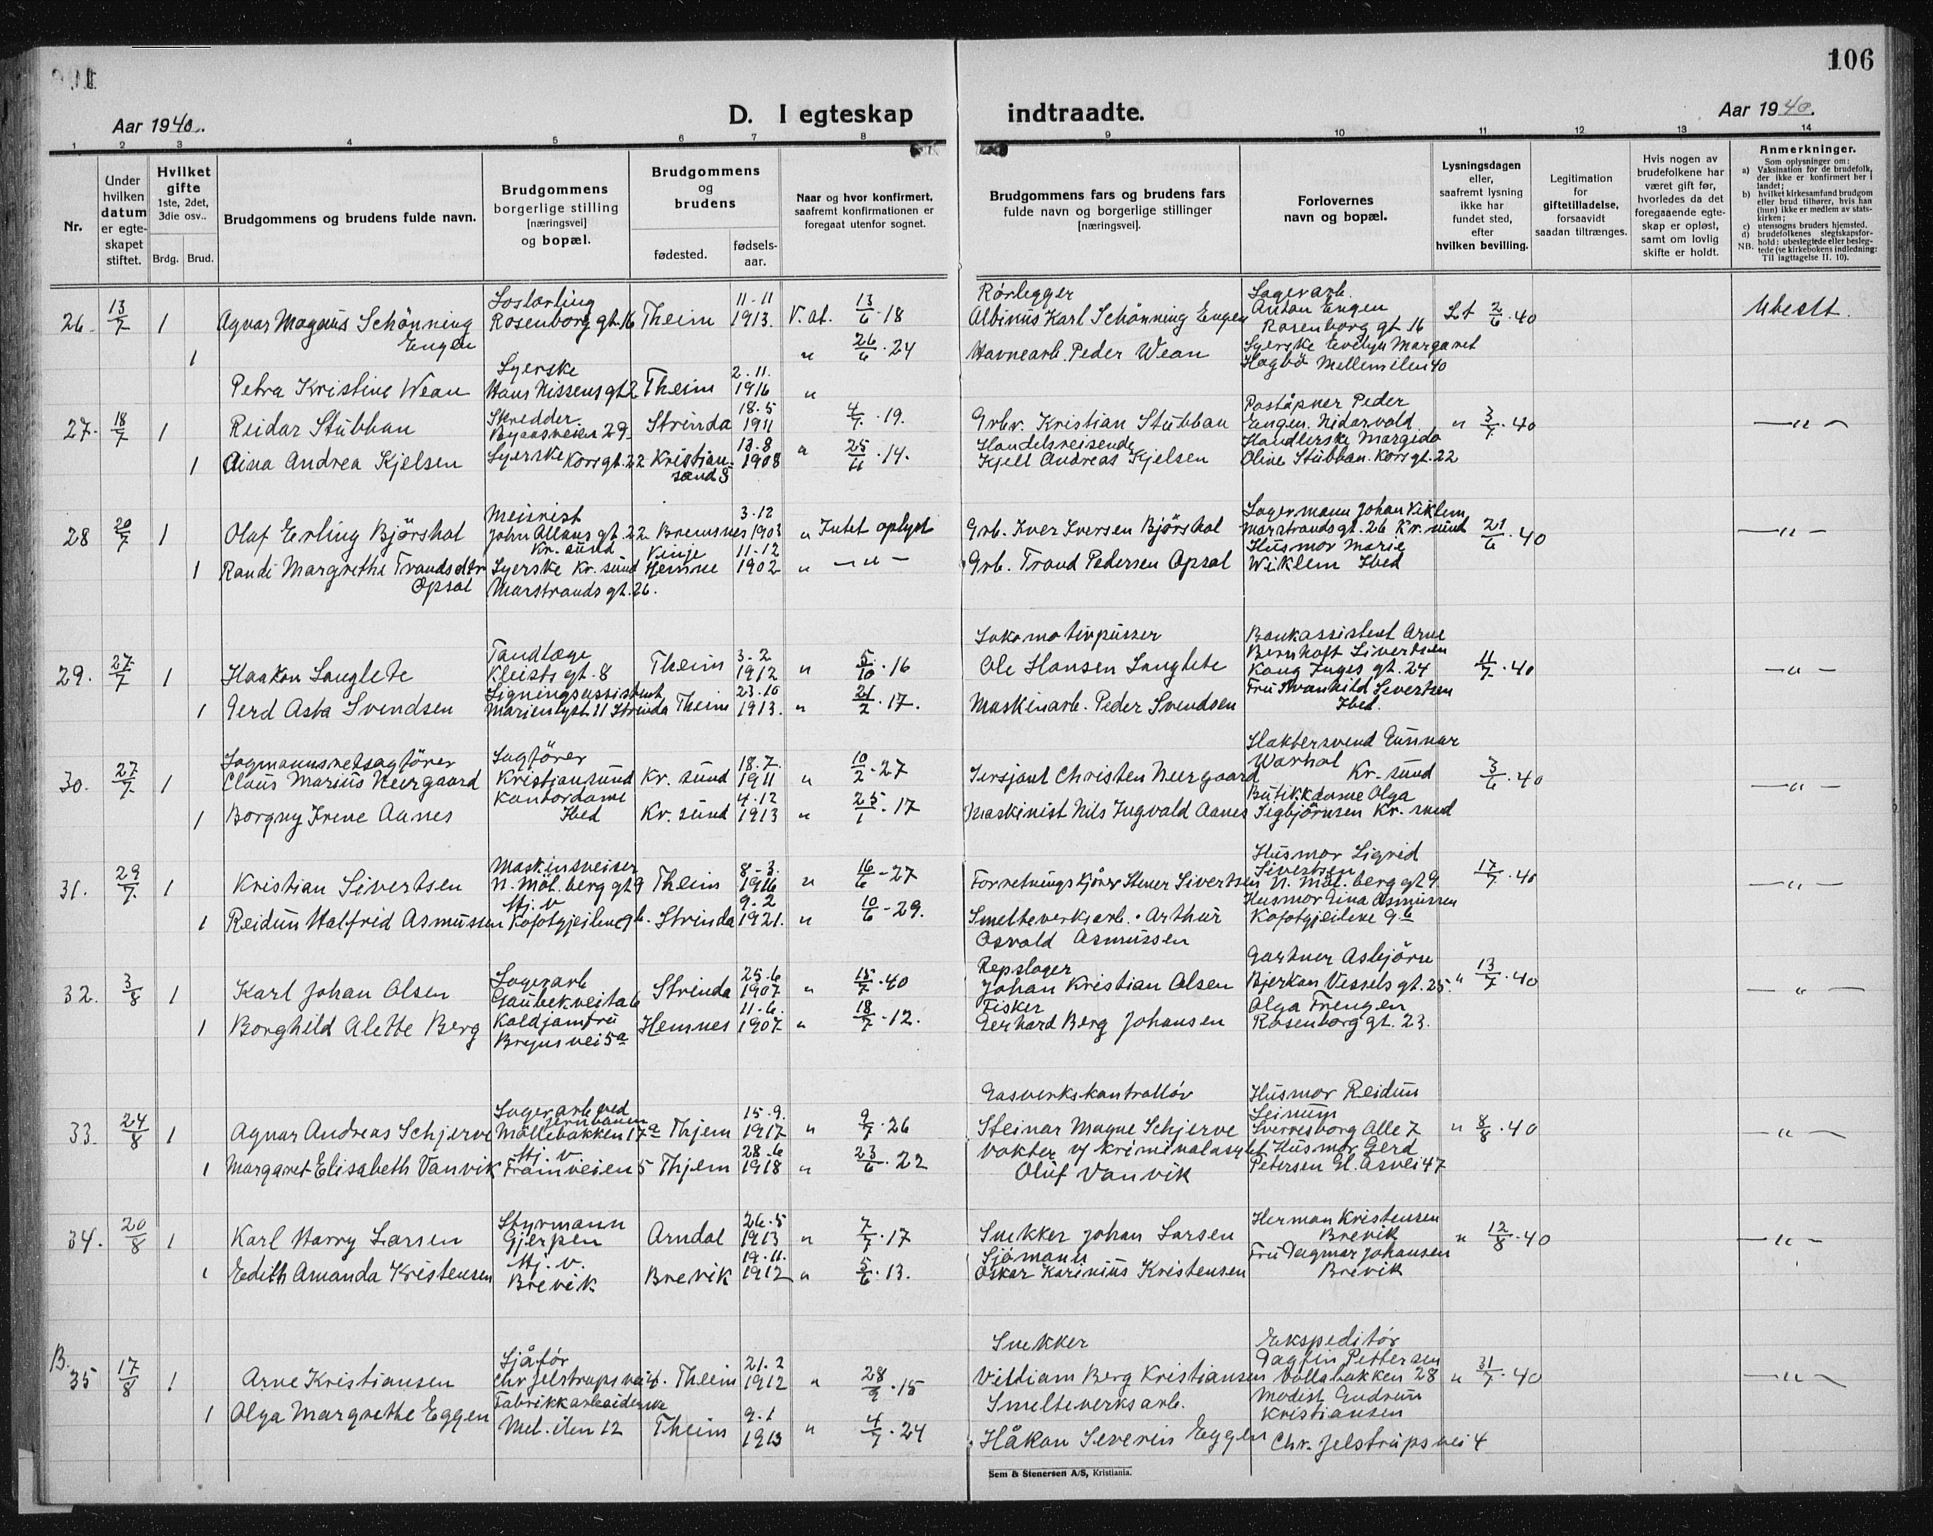 106
Aar 1940.
D. I egteskap indtraadte.
Aar 1940.
1 2 3 4 5 6 7 8 9 10 11 12 13 14
Nr.
Under hvilken datum er egte-skapet stiftet.
Hvilket gifte 1ste, 2det, 3die osv..
Brdg. Brud.
Brudgommens og brudens fulde navn.
Brudgommens borgerlige stilling [næringsvei] og bopæl.
Brudgommens og brudens
fødested.
fødsels-aar.
Naar og hvor konfirmert, saafremt konfirmationen er foregaat utenfor sognet.
Brudgommens fars og brudens fars fulde navn og borgerlige stillinger [næringsvei].
Forlovernes navn og bopæl.
Lysningsdagen eller, saafremt lysning ikke har fundet sted, efter hvilken bevilling.
Legitimation for giftetilladelse, forsaavidt saadan tiltrænges.
Hvis nogen av brudefolkene har været gift før, hvorledes da det foregaaende egte-skap er opløst, samt om lovlig skifte er holdt.
Anmerkninger.
Som oplysninger om:
a) Vaksination for de brudefolk, der ikke er konfirmert her i landet;
b) hvilket kirkesamfund brudgom eller brud tilhører, hvis han (hun) ikke er medlem av stats-kirken;
c) utensogns bruders hjemsted.
d) brudefolkenes slegtskapsfor-hold: ubeslegtede eller besleg-tede (se kirkebokens indledning: Til iagttagelse II. 10).
NB.
26. 13/7 1 Agnar Magnus Schönning Engen
Rosenborg gt. 16 Theim 11-11 1913. V. at. 13/6 · 18
Rørlegger Albinus Karl Schönning Engen
Lagerarb. Anton Engen Rosenborg gt 16
Lt 2/6 · 40 Ubesltt.
1 Petra Kristine Wean
Syerske Hans Nissens gt 2 Theim 2.11. 1916 " 26/6 · 24
Havnearb. Peder Wean
Syerske Evelyn Margaret Hagbø Mellemilen 40
27. 18/7 1 Reidar Stubban
Skredder Byaasveien 29 Strinda 18.5 1911 4/7 · 19.
Grbr. Kristian Stubban
Poståpner Peder Engen. Nidarvold
" 3/7 · 40 —"—
1 Aina Andrea Kjelsen
Syerske Korsgt. 22 Kristiansand S 13-8 1908 " 25/6 · 14.
Handelsreisende Kjell Andreas Kjelsen
Handlerske Margido Oline Stubban. Korsgt. 22
28 20/7 1 Olaf Erling Bjørshol
Meierist John Allans gt. 22 Kr. sund Bremsnes 3.12 1903 " Intet oplyst
Grb. Iver Iversen Bjørshol
Lagermann Johan Viklem Marstrands gt. 26 Kr. sund
21/6 · 40 —"—
1 Randi Margrethe Trondsdtr Opsal
Syerske Kr. sund Marstrands gt. 26. Vinje Hemne 11-12 1902 " —"—
Grb. Trond Pedersen Opsal
Husmor Marie Wiklem Ibed
29. 27/7 1 Haakon Langlete
Tandlæge Kleists gt. 8 Theim 3-2 1912 " 5/10 · 16
Lokomotivpusser Ole Hansen Langlete
Bankassistent Arne Bernhoft Sivertsen Kong Inges gt. 24
11/7 · 40 —"—
1 Gerd Asta Svendsen
Ligningsassistent Marienlyst 11 Strinda Theim 23.10 1913. " 21/2 · 17.
Maskinarb. Peder Svendsen
Fru Svanhild Sivertsen Ibed.
30. 27/7. 1 Sagmannsretsagfører Claus Marius Neergaard
Sagfører Kristiansund Kr. sund 18.7 1911 " 10/2 · 27
Sersjant Christen Neergaard
Slaktersvend Gunnar Warhol Kr. sund
3/6 · 40 —"—
1 Borgny Irene Aanes
Kontordame Ibed Kr. sund 4.12 1913 " 25/1 · 17
Maskinist Nils Ingvald Aanes
Butikkdame Olga Sigbjørnsen Kr. sund
31. 29/7. 1 Kristian Sivertsen
N. Möl. berg gt 9 Theim 8-3. 1916 " 16/6 - 27
Forretningskjører Stener Sivertsen
Husmor Sigrid Sivertsen N. Möl. berg gt 9
17/7 · 40 —"—
1 Reidun Halfrid Asmussen
Hj. v. Kofotgjeilene 9b. Strinda 9.2 1921. " 10/6 - 29.
Smelteverkjarb. Arthur Osvald Asmussen
Husmor Eina Asmussen Kofotgjeilene 9b
32. 3/8 1 Karl Johan Olsen
Lagerarb Gaubekveita 6 Strinda 25.6 1907 " 15/7 · 40
Repslager Johan Kristian Olsen
Gartner Asbjørn Bjerkan Vessels gt. 25.
" 13/7 · 40 —"—
1 Borghild Alette Berg
Koldjomfru Brynsvei 5a Hemnes 11-6. 1907 " 18/7 - 12.
Fisker Gerhard Berg Johansen
Olga Trengen Rosenborg gt. 23.
33. 24/8 1 Agnar Andreas Schjerve
Lagerarb ved jernbanen Möllebakken 17a Thjem 15-9. 1917 " 9/7 · 26
Gasverkskontrollør Steinar Magne Schjerve
Husmor Reidun Leinum Sverresborg Alle 7
" 8/8 · 40 —"—
1 Margaret Elisabeth Vanvik
Hj. v. Framveien 5 Thjem 28-6 1918 " 23/6 · 22
vokter v/ kriminalasylet Oluf Vanvik
Husmor Gerd Petersen Gl. Åsvei 47
34. 20/8 1 Karl Harry Larsen
Styrmann Gjerpen Arndal 26.5 1913 " 7/7 · 17
Snekker Johan Larsen
Herman Kristensen Brevik
" 12/8 · 40 —"—
1 Edith Amanda Kristensen
Hj. v. Brevik Brevik 19-11. 1912 " 5/6 · 13.
Sjømann Oskar Karinius Kristensen
Fru Dagmar Johansen Brevik
B. 35 17/8 1 Arne Kristiansen
Sjåfør Chr Jelstrupsvei 4. Theim 21.2 1912 " 28/9 · 15
Snekker Villiam Berg Kristiansen
Ekspeditør Dagfin Pettersen Vollabakken 28
" 31/7 · 40 —"—
1 Olga Margrethe Eggen
Fabrikkarbeiderske Mel. ilen 12 Theim 9.1 1913 " 4/7 · 24
Smelteverksarb. Håkon Severin Eggen
Modist Gudrun Kristiansen Chr. Jelstrups vei 4
Sem & Stenersen A/S, Kristiania.